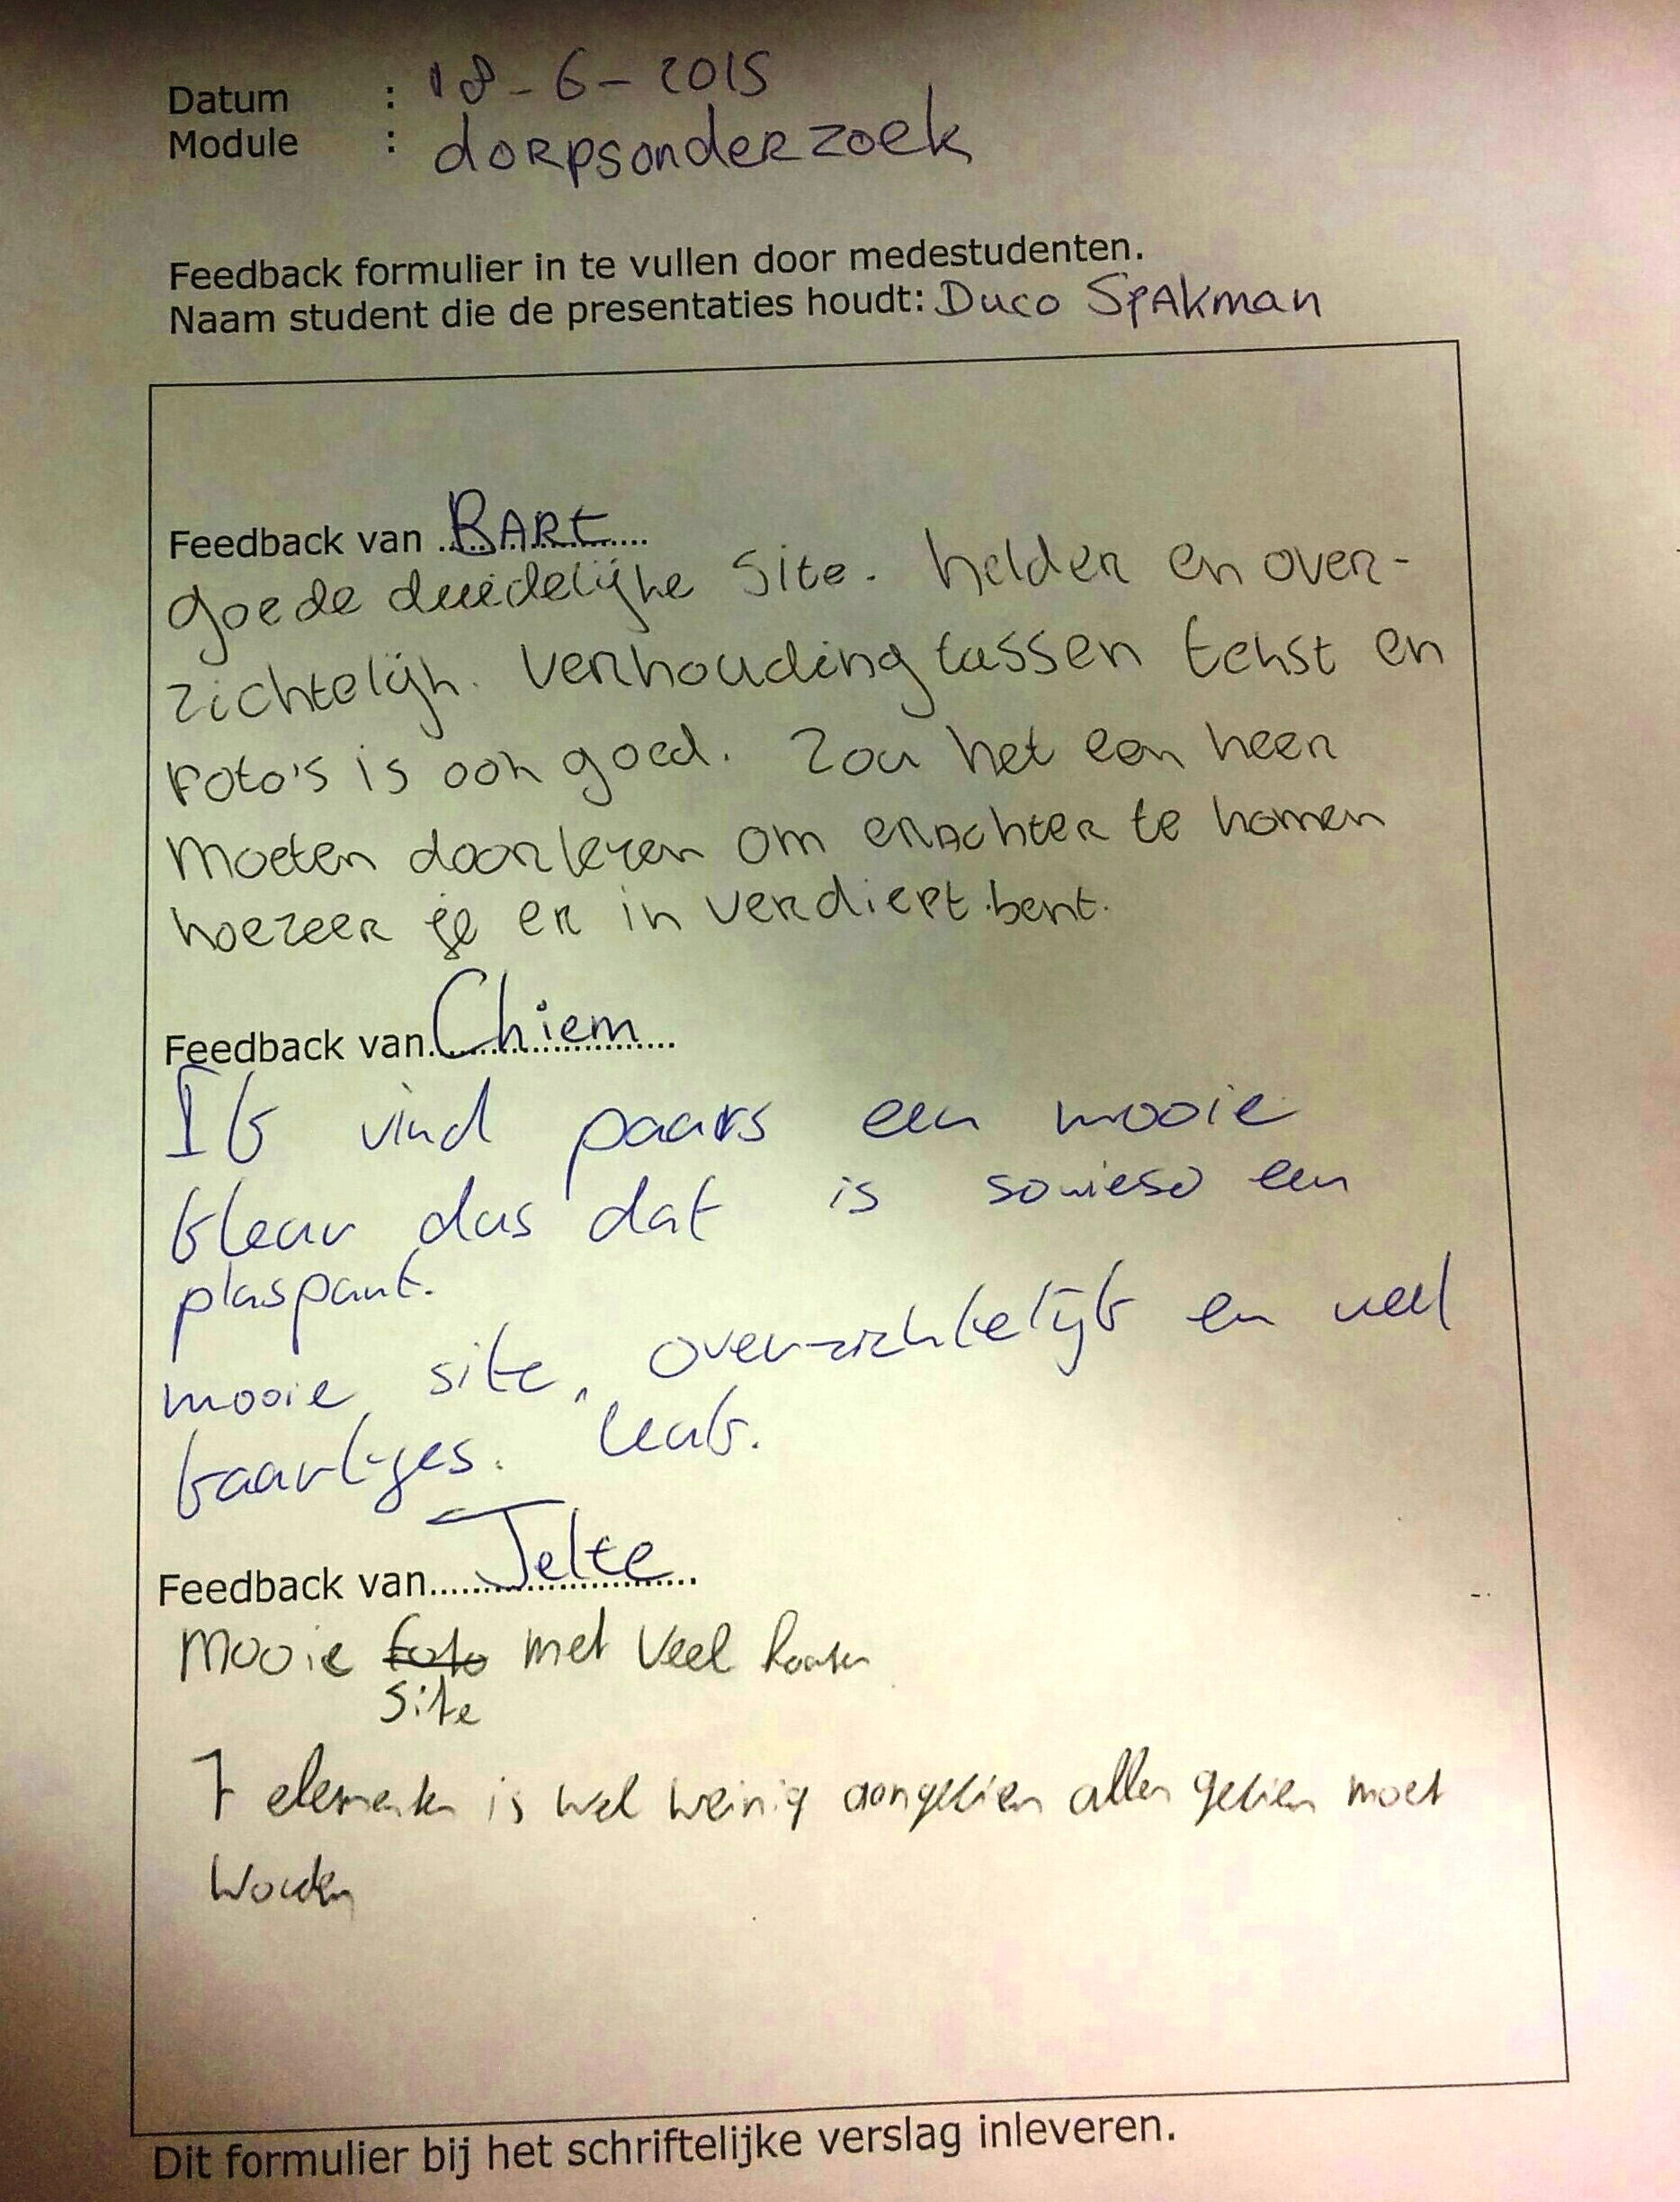 Datum : 18-6-2015
Module : dorpsonderzoek
Feedback formulier in te vullen door medestudenten.
Naam student die de presentaties houdt: Duco Spakman
Feedback van BART
goede duidelijke site. helder en over-
zichtelijk. Verhouding tussen tekst en
Foto's is ook goed. Zou het een keer
moeten doorlezen om erachter te komen
hoezeer je er in verdiept bent.
Feedback van Chiem
Ik vind paars een mooie
kleur dus dat is sowieso een
pluspunt.
mooie site, overzichtelijk en veel
kaartjes. leuk.
Feedback van Jelte
Mooie foto met veel kaarten
site
7 elementen is wel weinig aangezien alles gezien moet
worden
Dit formulier bij het schriftelijke verslag inleveren.